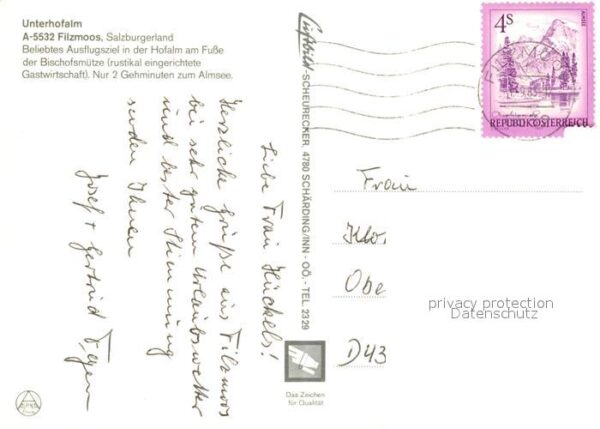 Unterhofalm
A-5532 Filzmoos, Salzburgerland
Beliebtes Ausflugsziel in der Hofalm am Fuße
der Bischofsmütze (rustikal eingerichtete
Gastwirtschaft). Nur 2 Gehminuten zum Almsee.
Liebe Frau Hückels!
Herzliche Grüße aus Filzmoos
bei sehr gutem Urlaubswetter
und bester Stimmung
senden Ihnen
Josef + Gertrud
Luftbild-SCHEURECKER, 4780 SCHÄRDING/INN - OÖ. - TEL. 23 29
4S
ALMSEE
REPUBLIK ÖSTERREICH
FILZMOOS
Frau
Klo
Obe
D43
privacy protection
Datenschutz
Das Zeichen
für Qualität